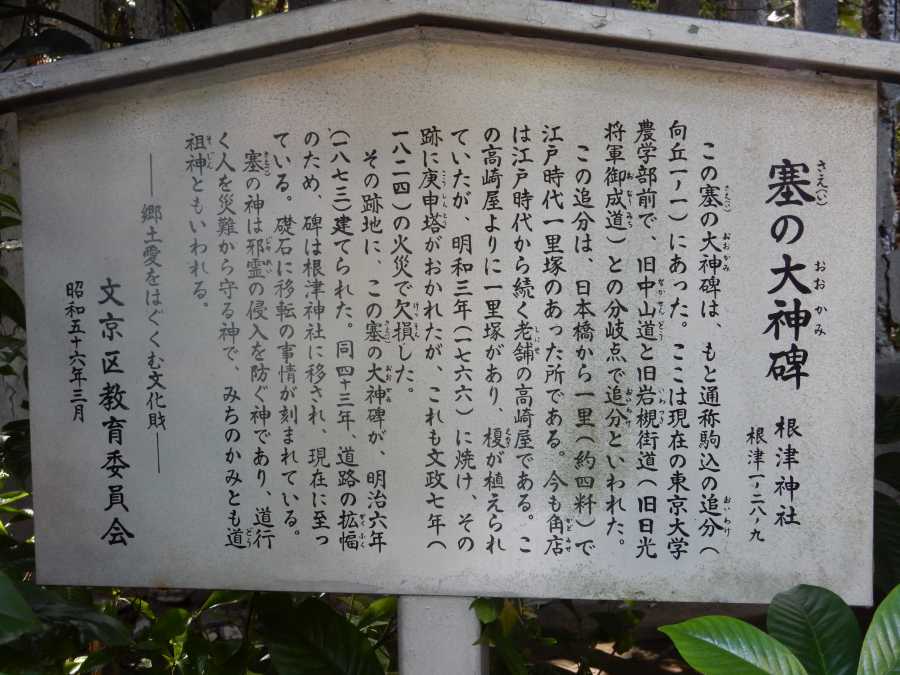 塞の大神碑
根津神社
根津一ノ二八ノ九
この塞の大神碑は、もと通称駒込の追分(
向丘一ノ一)にあった。ここは現在の東京大学
農学部前で、旧中山道と旧岩槻街道(旧日光
将軍御成道)との分岐点で追分といわれた。
この追分は、日本橋から一里(約四粁)で
江戸時代一里塚のあった所である。今も角店
は江戸時代から続く老舗の高崎屋である。こ
の高崎屋よりに一里塚があり、榎が植えられ
ていたが、明和三年(一七六六)に焼け、その
跡に庚申塔がおかれたが、これも文政七年(
一八二四)の火災で欠損した。
その跡地に、この塞の大神碑が、明治六年
(一八七三)建てられた。同四十三年、道路の拡幅
のため、碑は根津神社に移され、現在に至っ
ている。礎石に移転の事情が刻まれている。
塞の神は邪霊の侵入を防ぐ神であり、道行
く人を災難から守る神で、みちのかみとも道
祖神ともいわれる。
――郷土愛をはぐくむ文化財――
文京区教育委員会
昭和五十六年三月